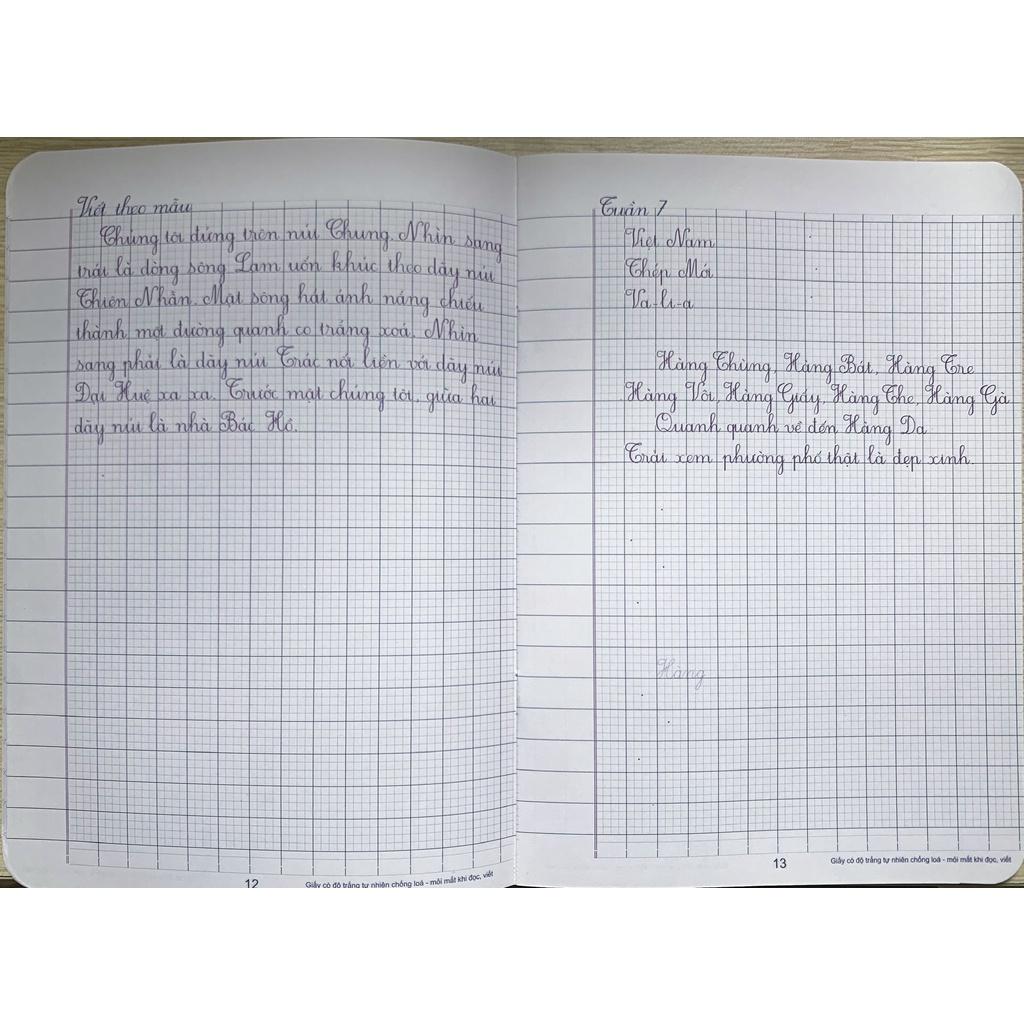 Viết theo mẫu
Chúng tôi đứng trên núi Chung. Nhìn sang
trái là dòng sông Lam uốn khúc theo dãy núi
Thiên Nhẫn. Mặt sông hắt ánh nắng chiếu
thành một đường quanh co trắng xoá. Nhìn
sang phải là dãy núi Trác nối liền với dãy núi
Đại Huệ xa xa. Trước mặt chúng tôi, giữa hai
dãy núi là nhà Bác Hồ.
12
Giấy có độ trắng tự nhiên chống loá - mỏi mắt khi đọc, viết
Tuần 7
Việt Nam
Thép Mới
Va-li-a
Hàng Thùng, Hàng Bát, Hàng Tre
Hàng Vôi, Hàng Giấy, Hàng The, Hàng Gà
Quanh quanh về đến Hàng Da
Trải xem phường phố thật là đẹp xinh.
Hàng
13
Giấy có độ trắng tự nhiên chống loá - mỏi mắt khi đọc, viết